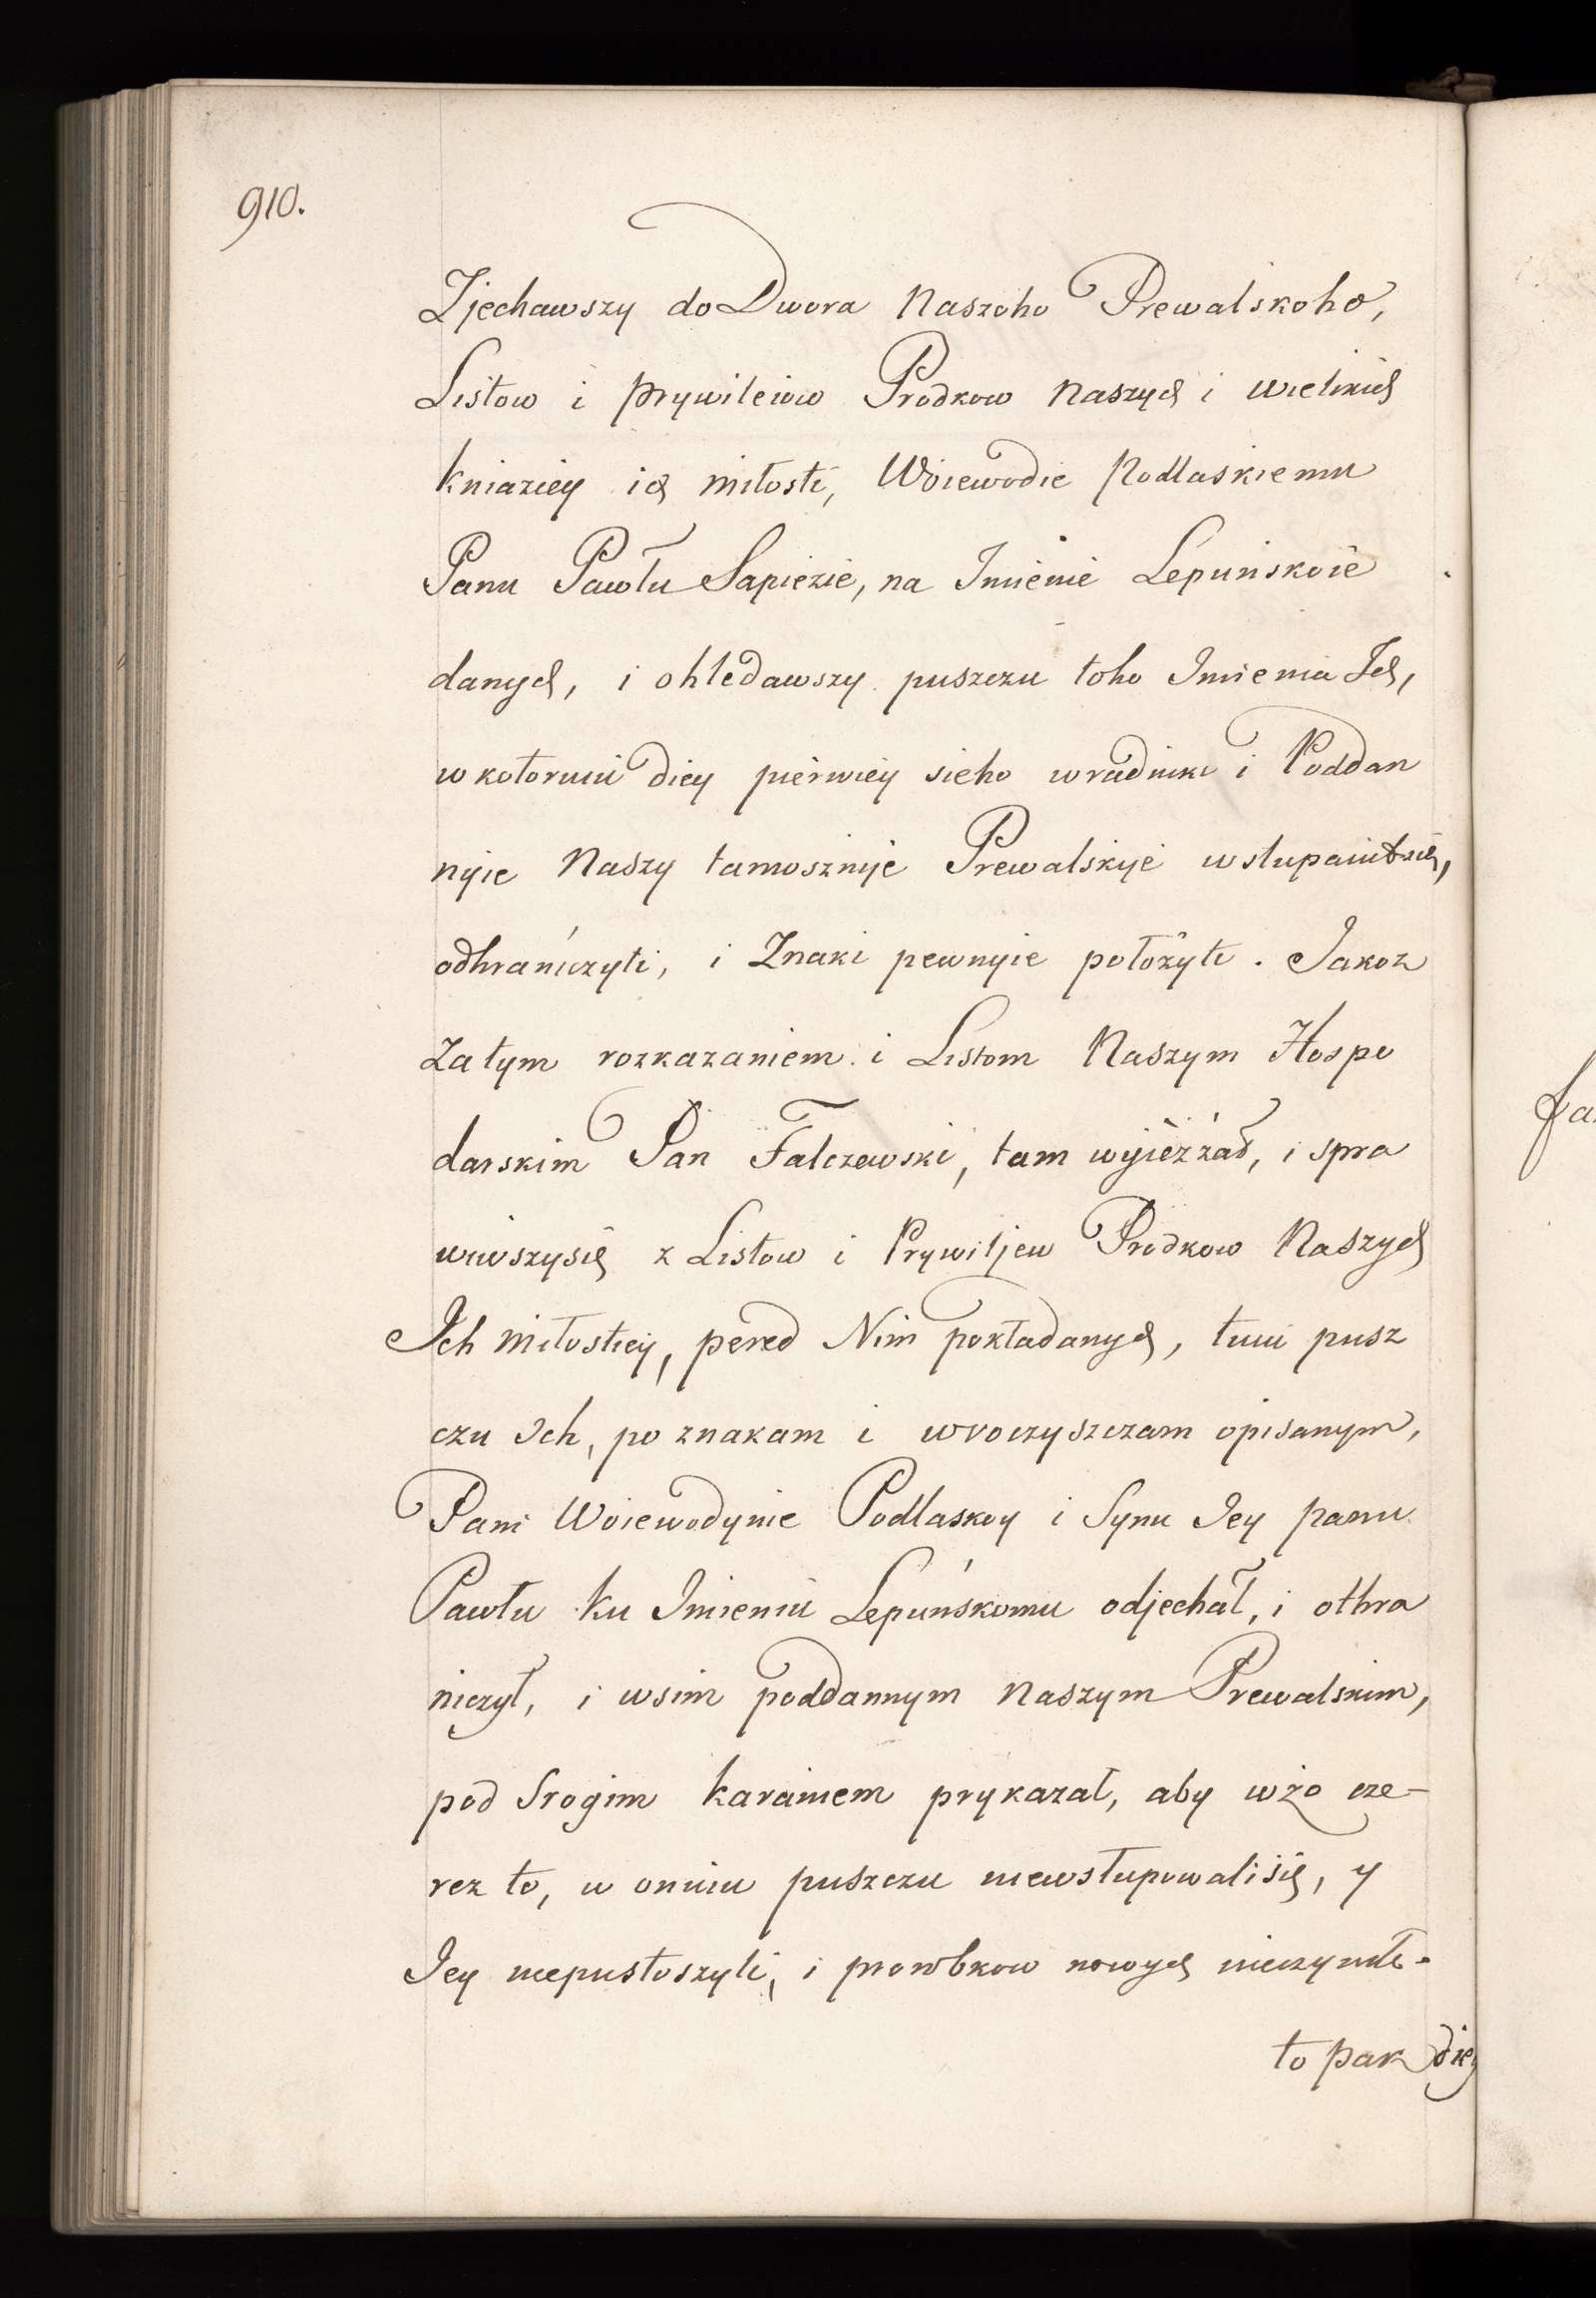 910.
Zjechawszy do Dwora Naszoho Prewalskoho,
Listow i prywileiow Prodkow Naszych i wielikich
kniaziey ich miłosti, Woiewodie Podlaskiemu
Panu Pawłu Sapiezie, na Imienie Lepuńskoie
danych, i ohledawszy puszczu toho Imienia Ich,
w kotoruiu diey pierwiey sieho wradniki i Poddan
nyie Naszy tamosznyie Prewalskyie wstupaiutsia,
odhraniczyti, i Znaki pewnyie położyti. Jakoz
za tym rozkazaniem i Listom Naszym Hospo
darskim Pan Falczewski, tam wyieżżał, i spra
wiwszysię z Listow i Prywiljew Prodkow Naszych
Ich Miłostiey, pered Nim pokładanych, tuiu pusz
czu Ich, po znakam i wroczyszczam opisanym,
Pani Woiewodynie Podlaskoy i Synu Jey panu
Pawłu ku Imieniu Lepuńskomu odjechał, i othra
niczył, i wsim poddannym Naszym Prewalskim,
pod Srogim karaniem prykazał, aby wżo cze-
rez to, w onuiu puszczu niewstupowalisię, y
Jey niepustoszyli, i prorobkow nowych nieczynili.
to pak diey
fa